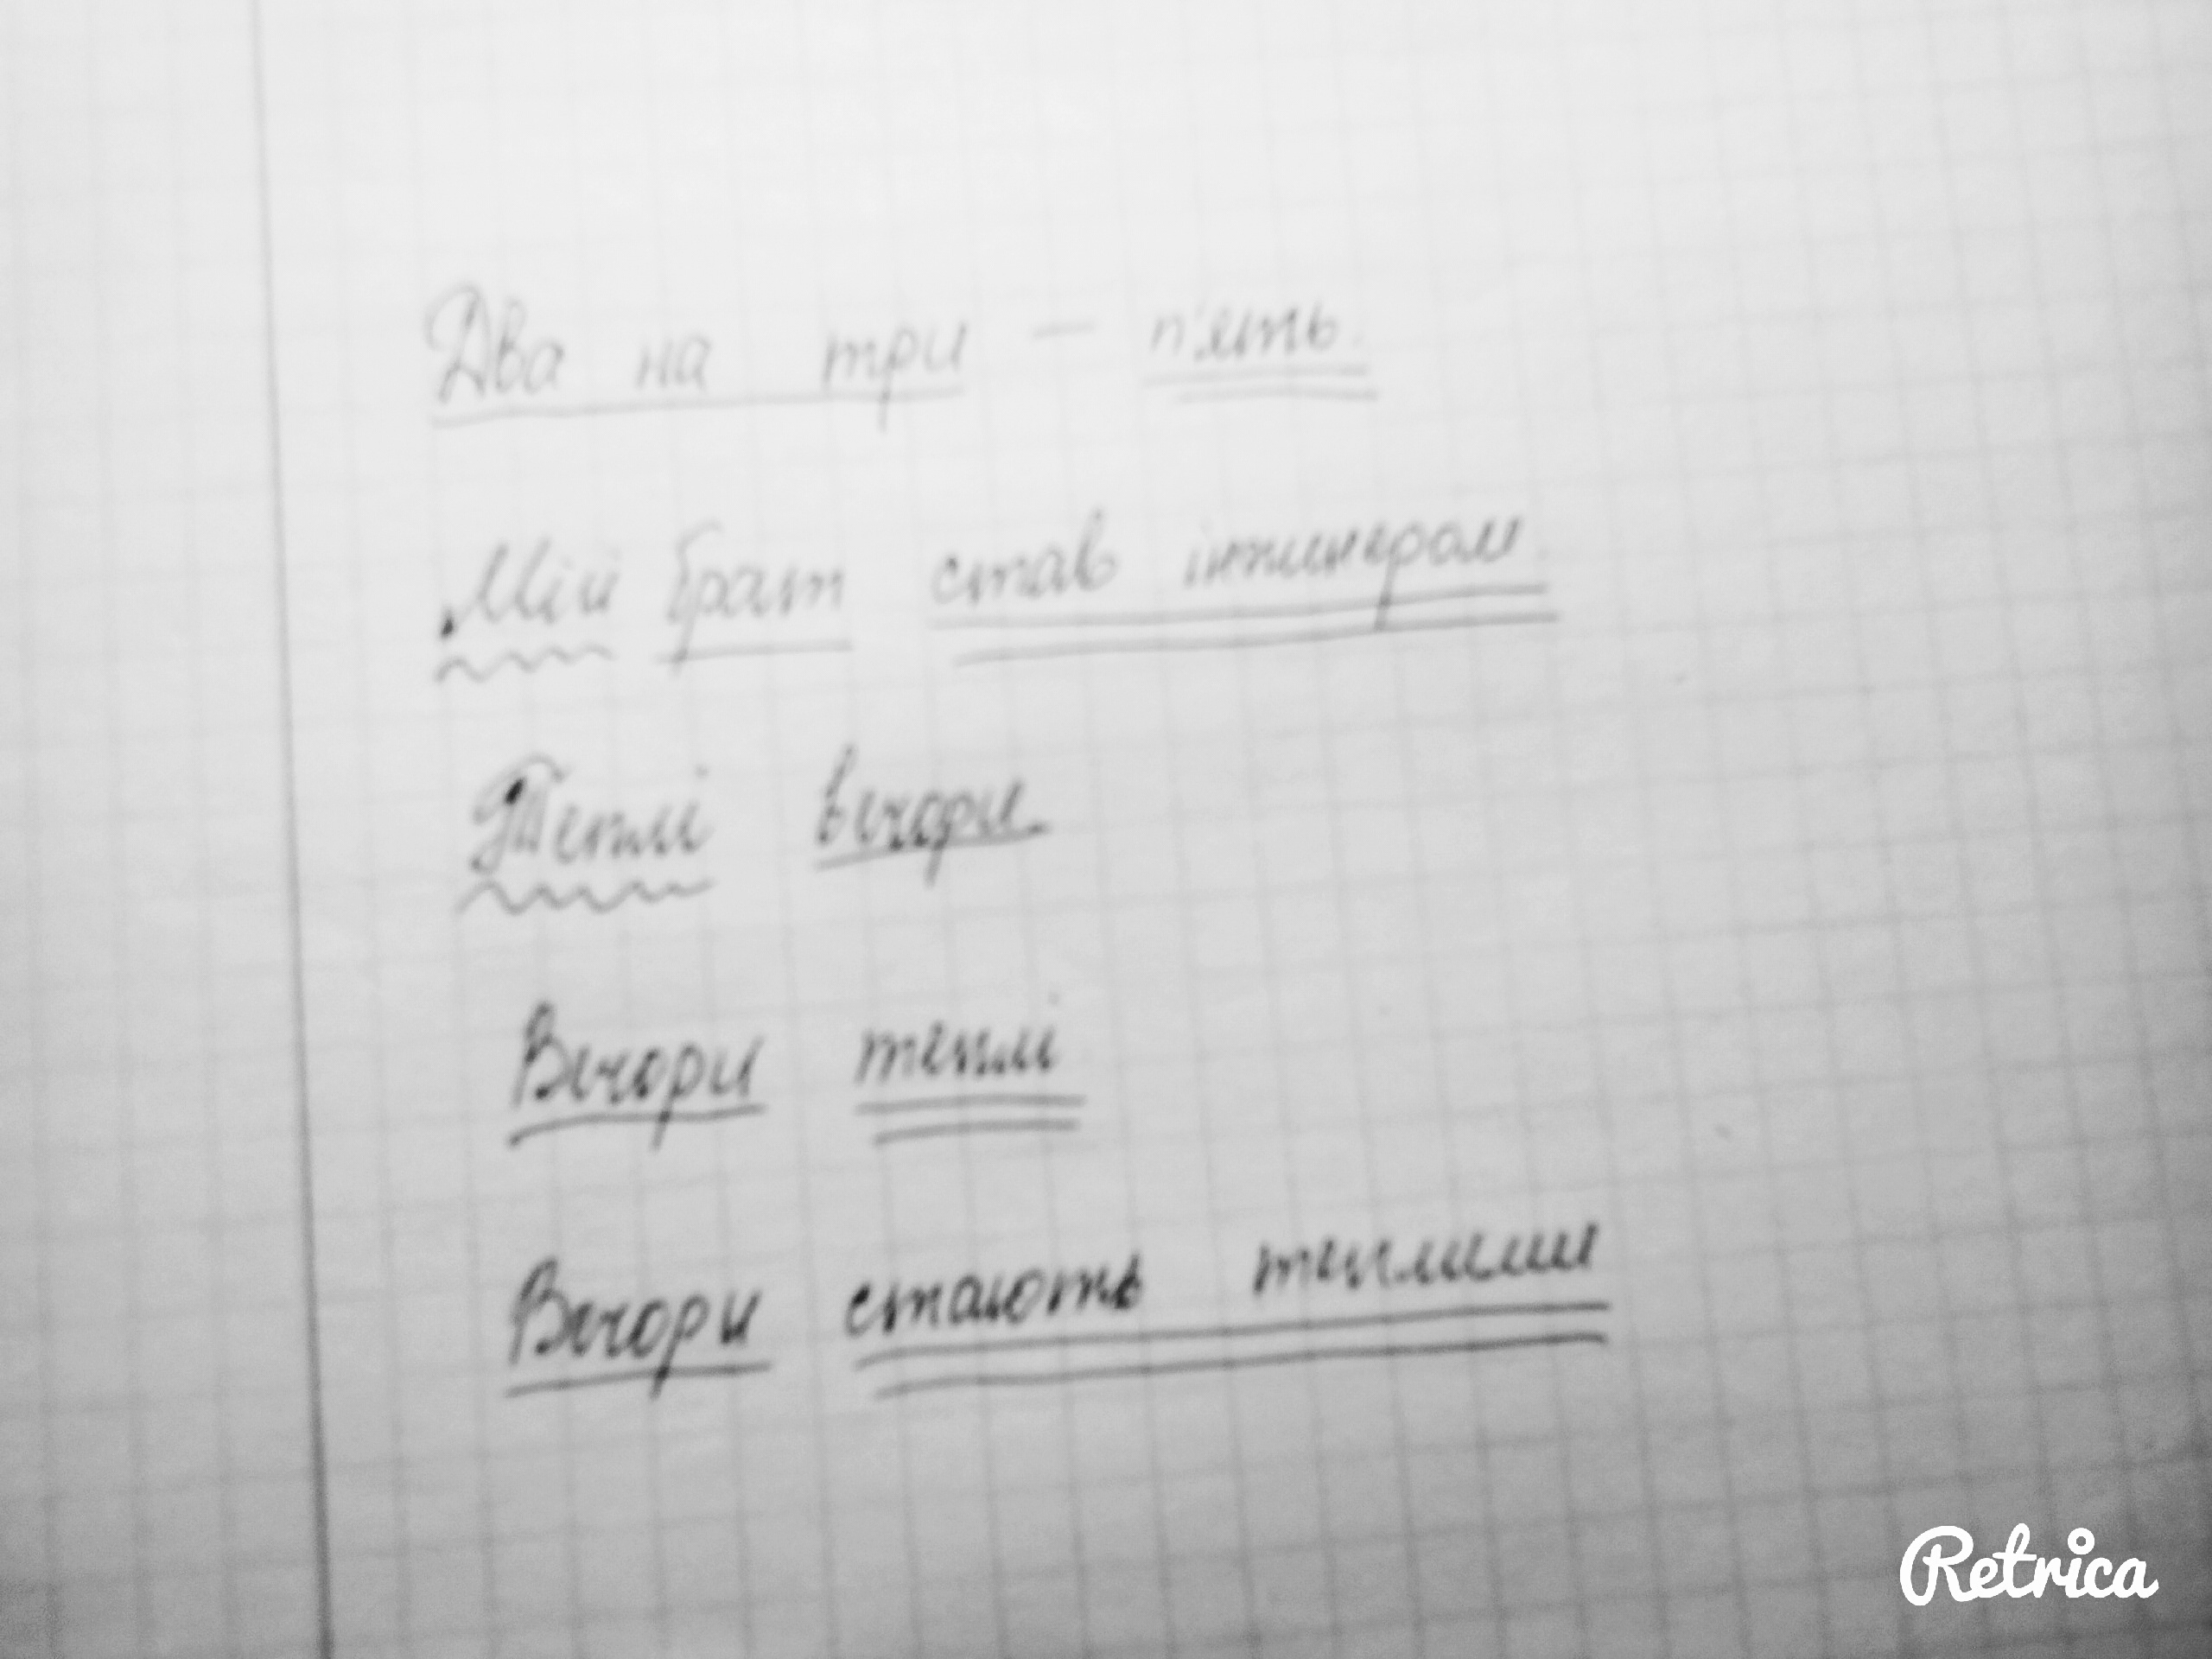 Два на три – п'ять.
Мій брат став інжинером
Теплі вечори.
Вечори теплі
Вечори стають теплими
Retrica